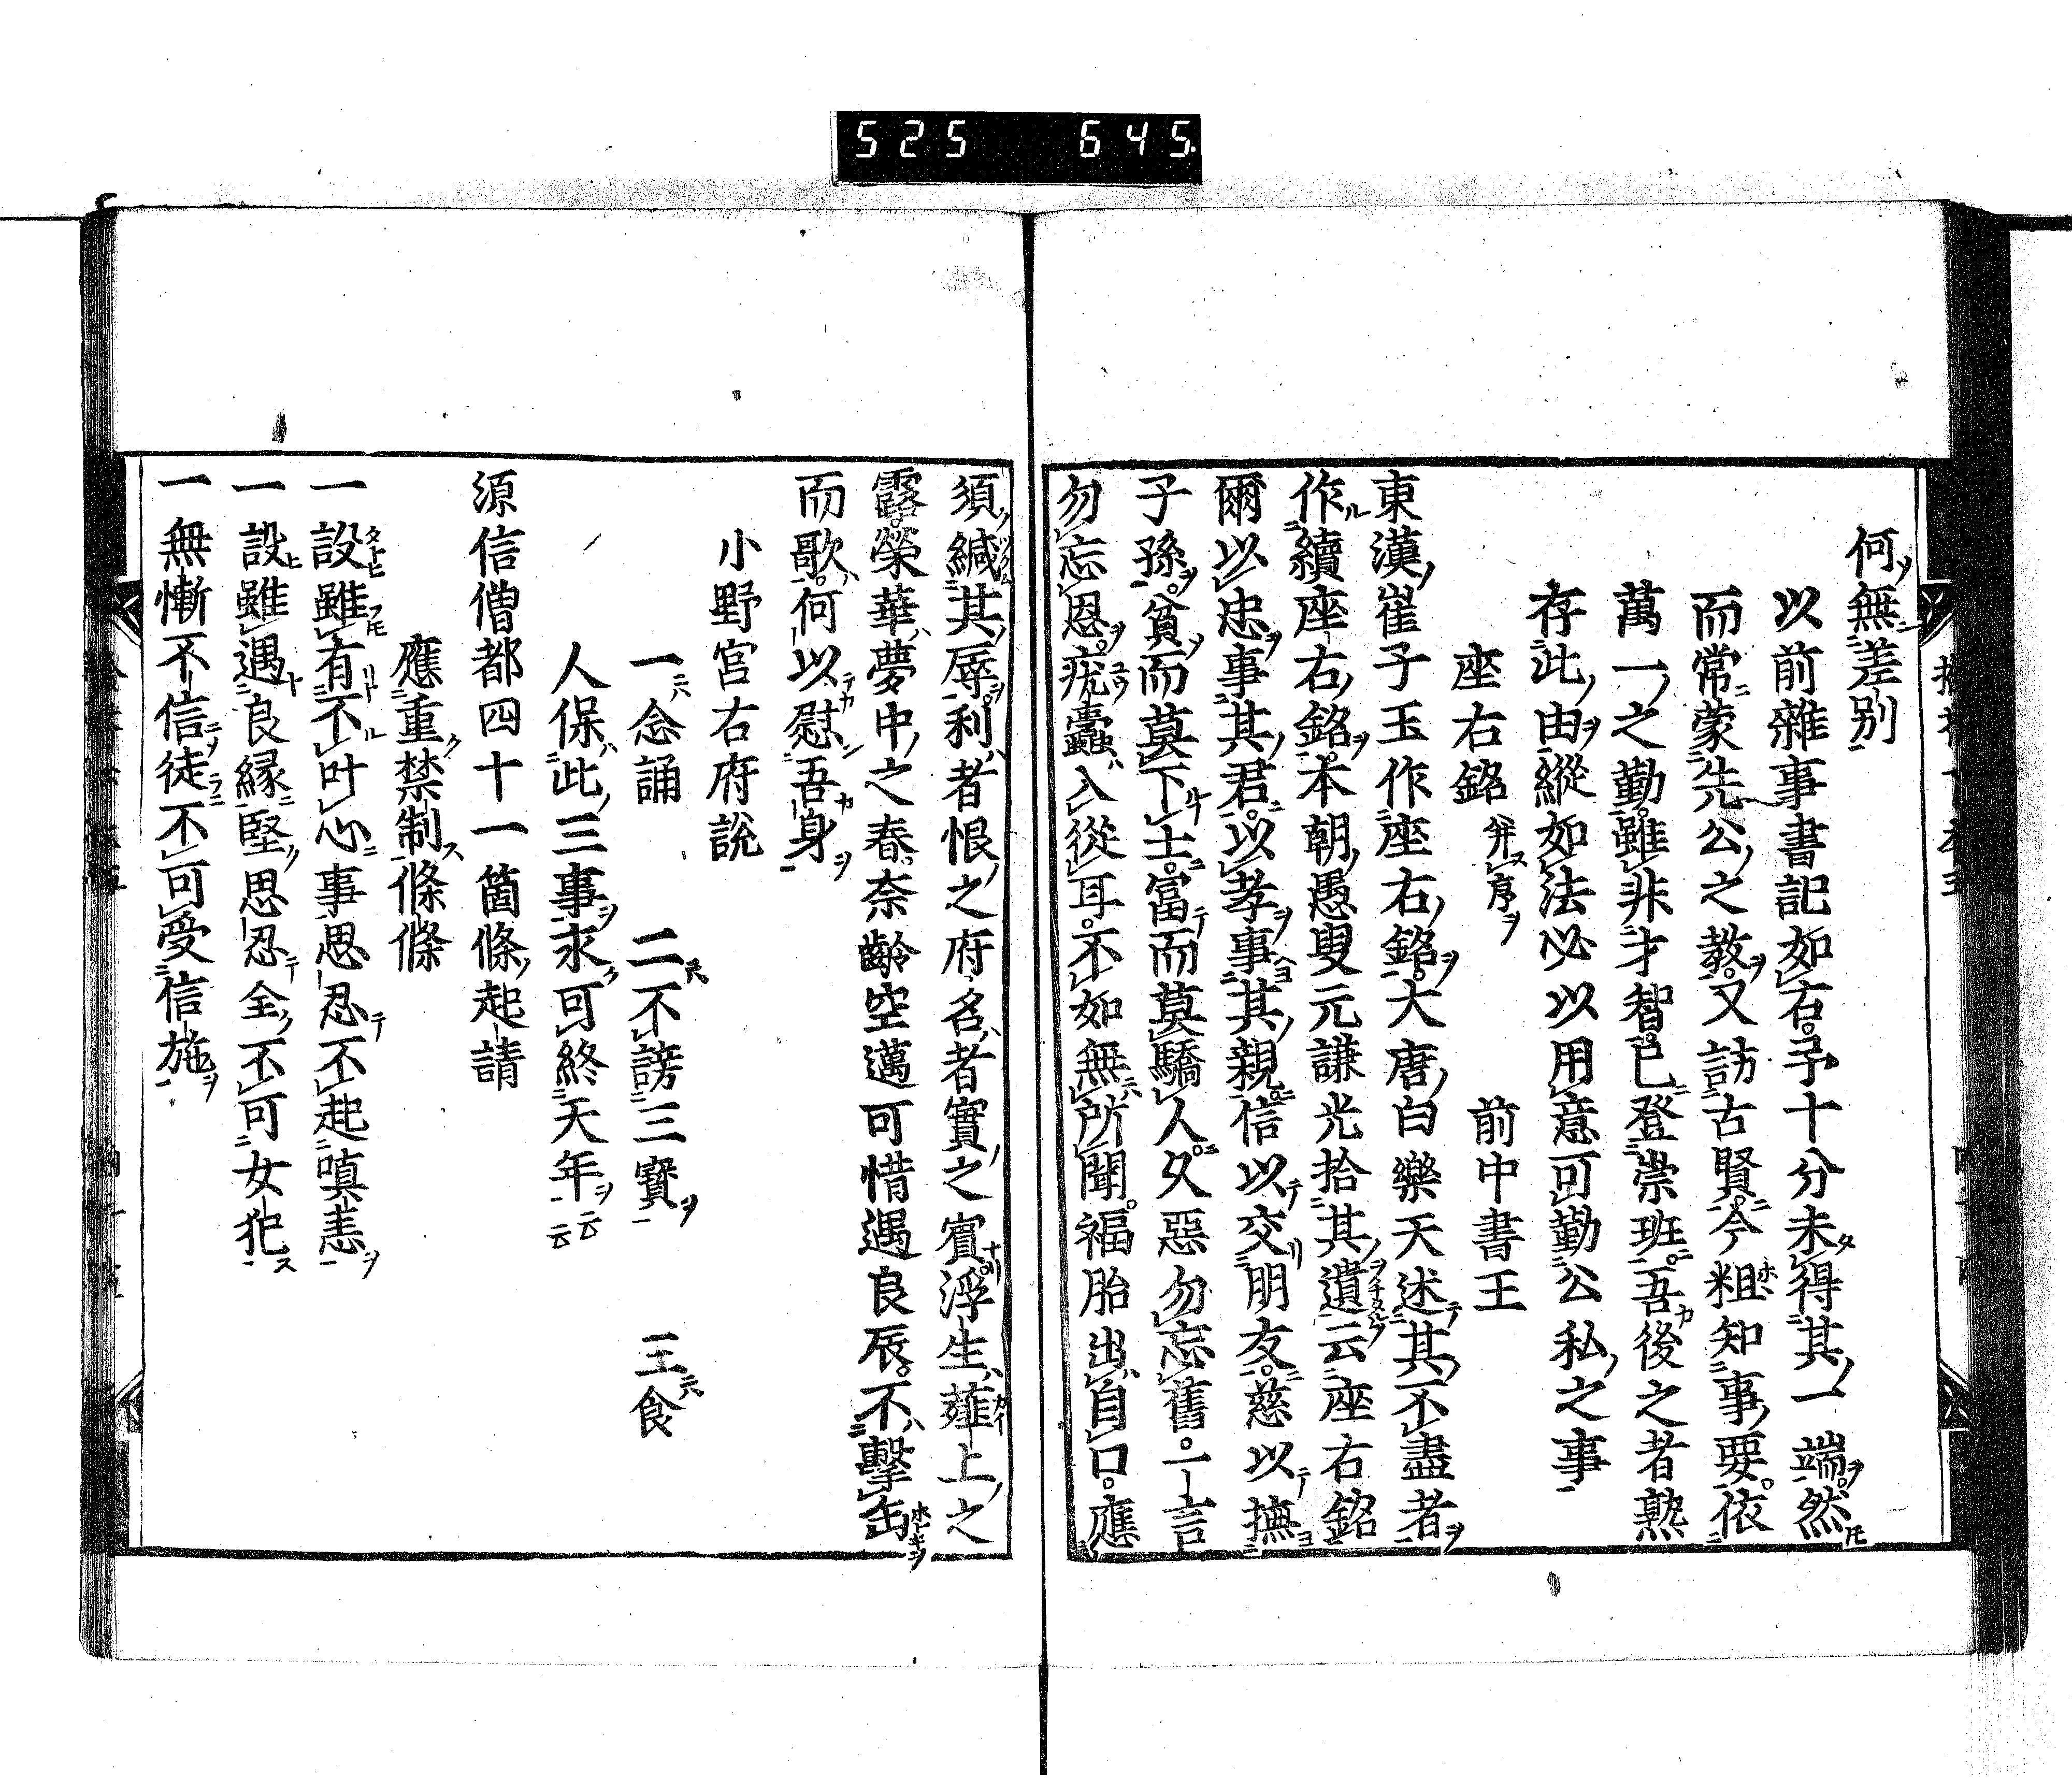 525 645.
何無差別
以前雜事書記如右予十分未得其一端然
而常蒙先公之教又訪古賢今粗知事要依
萬一之勤雖非才智已登崇班吾後之者熟
存此由縱如法必以用意可勤公私之事
座右銘 并序 前中書王
東漢崔子玉作座右銘大唐白樂天述其不盡者
作續座右銘本朝愚叟元謙光拾其遺云座右銘
爾以忠事其君以孝事其親信以交朋友慈以撫
子孫貧而莫下士富而莫驕人久惡勿忘舊一言
勿忘恩疣蠹入從耳不如無所聞福胎出自口應
須緘其辱利者恨之府名者實之賓浮生薤上之
露榮華夢中之春奈齡空邁可惜遇良辰不擊缶
而歌何以慰吾身
小野宮右府說
一念誦 二不謗三寶 三食
人保此三事求可終天年云云
源信僧都四十一箇條起請
應重禁制條條
一設雖有不叶心事思忍不起嗔恚
一設雖遇良緣堅思忍全不可女犯
一無慚不信徒不可受信施